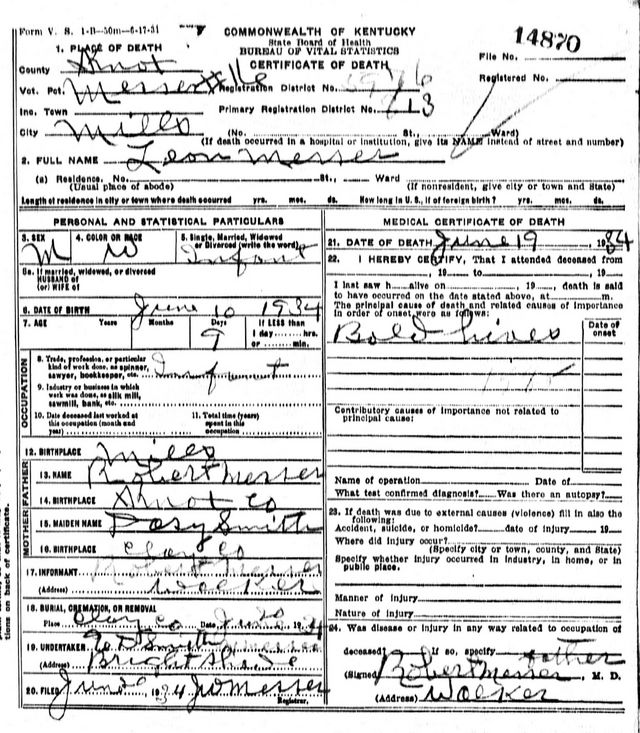 Form V. S. 1-B—50m—6-17-31
COMMONWEALTH OF KENTUCKY
State Board of Health
BUREAU OF VITAL STATISTICS
CERTIFICATE OF DEATH
14870
File No.
Registered No.
1. PLACE OF DEATH
County Knox
Vot. Pct. Messer
Registration District No.
Inc. Town
Primary Registration District No.
City Mills (No. St., Ward)
(If death occurred in a hospital or institution, give its NAME instead of street and number)
2. FULL NAME Leon Messer
(a) Residence. No. St., Ward
(Usual place of abode) (If nonresident, give city or town and State)
Length of residence in city or town where death occurred yrs. mos. ds. How long in U. S., if of foreign birth? yrs. mos. ds.
PERSONAL AND STATISTICAL PARTICULARS
3. SEX 4. COLOR OR RACE 5. Single, Married, Widowed
or Divorced (write the word)
M W Infant
5a. If married, widowed, or divorced
HUSBAND of
(or) WIFE of
6. DATE OF BIRTH June 10 1934
7. AGE Years Months Days If LESS than
9 1 day hrs.
or min.
OCCUPATION
8. Trade, profession, or particular
kind of work done, as spinner,
sawyer, bookkeeper, etc. Infant
9. Industry or business in which
work was done, as silk mill,
sawmill, bank, etc.
10. Date deceased last worked at
this occupation (month and
year)
11. Total time (years)
spent in this
occupation
12. BIRTHPLACE Mills
FATHER
13. NAME Robert Messer
14. BIRTHPLACE Knox Co
MOTHER
15. MAIDEN NAME Smith
16. BIRTHPLACE Clay Co
17. INFORMANT Robert Messer
(Address) Walker
18. BURIAL, CREMATION, OR REMOVAL
Place Clay Co Date June 20 1934
19. UNDERTAKER Smith
(Address) Bright Shade
20. FILED June 1934 Messer
Registrar.
MEDICAL CERTIFICATE OF DEATH
21. DATE OF DEATH June 19 1934
22. I HEREBY CERTIFY, That I attended deceased from
, 19 to , 19
I last saw h alive on , 19 , death is said
to have occurred on the date stated above, at m.
The principal cause of death and related causes of importance
in order of onset were as follows:
Date of
onset
Bold hives
Contributory causes of importance not related to
principal cause:
Name of operation Date of
What test confirmed diagnosis? Was there an autopsy?
23. If death was due to external causes (violence) fill in also the
following:
Accident, suicide, or homicide? date of injury 19
Where did injury occur?
(Specify city or town, county, and State)
Specify whether injury occurred in industry, in home, or in
public place.
Manner of injury
Nature of injury
24. Was disease or injury in any way related to occupation of
deceased? If so, specify father
(Signed) Robert Messer, M. D.
(Address) Walker
tions on back of certificate.